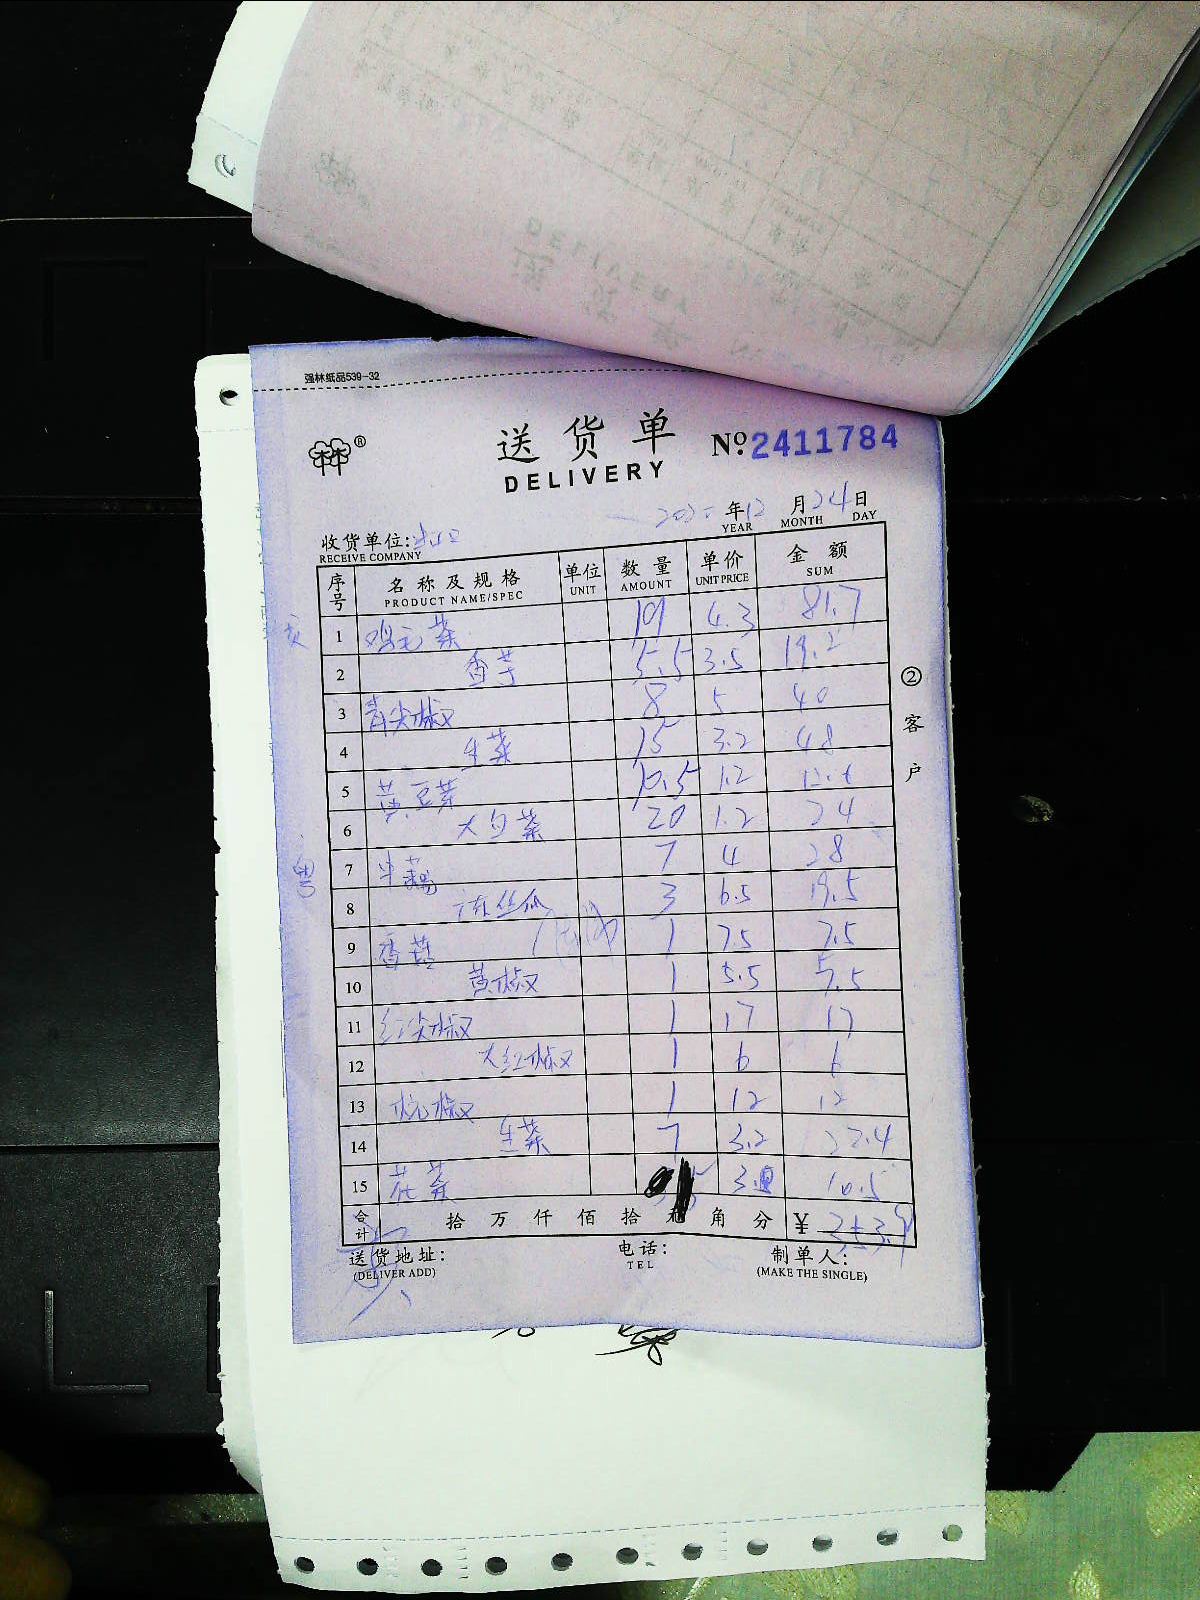 强林纸品539-32
林®
送货单
No. 2411784
DELIVERY
年12月24日
YEAR MONTH DAY
收货单位:
RECEIVE COMPANY
序号 名称及规格 单位 数量 单价 金额
PRODUCT NAME/SPEC UNIT AMOUNT UNIT PRICE SUM
1 鸡毛菜 19 4.3 81.7
2 香芋 5.5 3.5 19.2
3 青尖椒 8 5 40
4 生菜 15 3.2 48
5 黄豆芽 10.5 1.2 12.6
6 大白菜 20 1.2 24
7 7 4 28
8 丝瓜 3 6.5 19.5
9 香菇 1 7.5 7.5
10 黄椒 1 5.5 5.5
11 红尖椒 1 17 17
12 大红椒 1 6 6
13 杭椒 1 12 12
14 生菜 7 3.2 22.4
15 花菜 10.5
合计 拾万仟佰拾元角分 ¥ 353.9
送货地址: 电话: 制单人:
(DELIVER ADD) TEL (MAKE THE SINGLE)
②客户